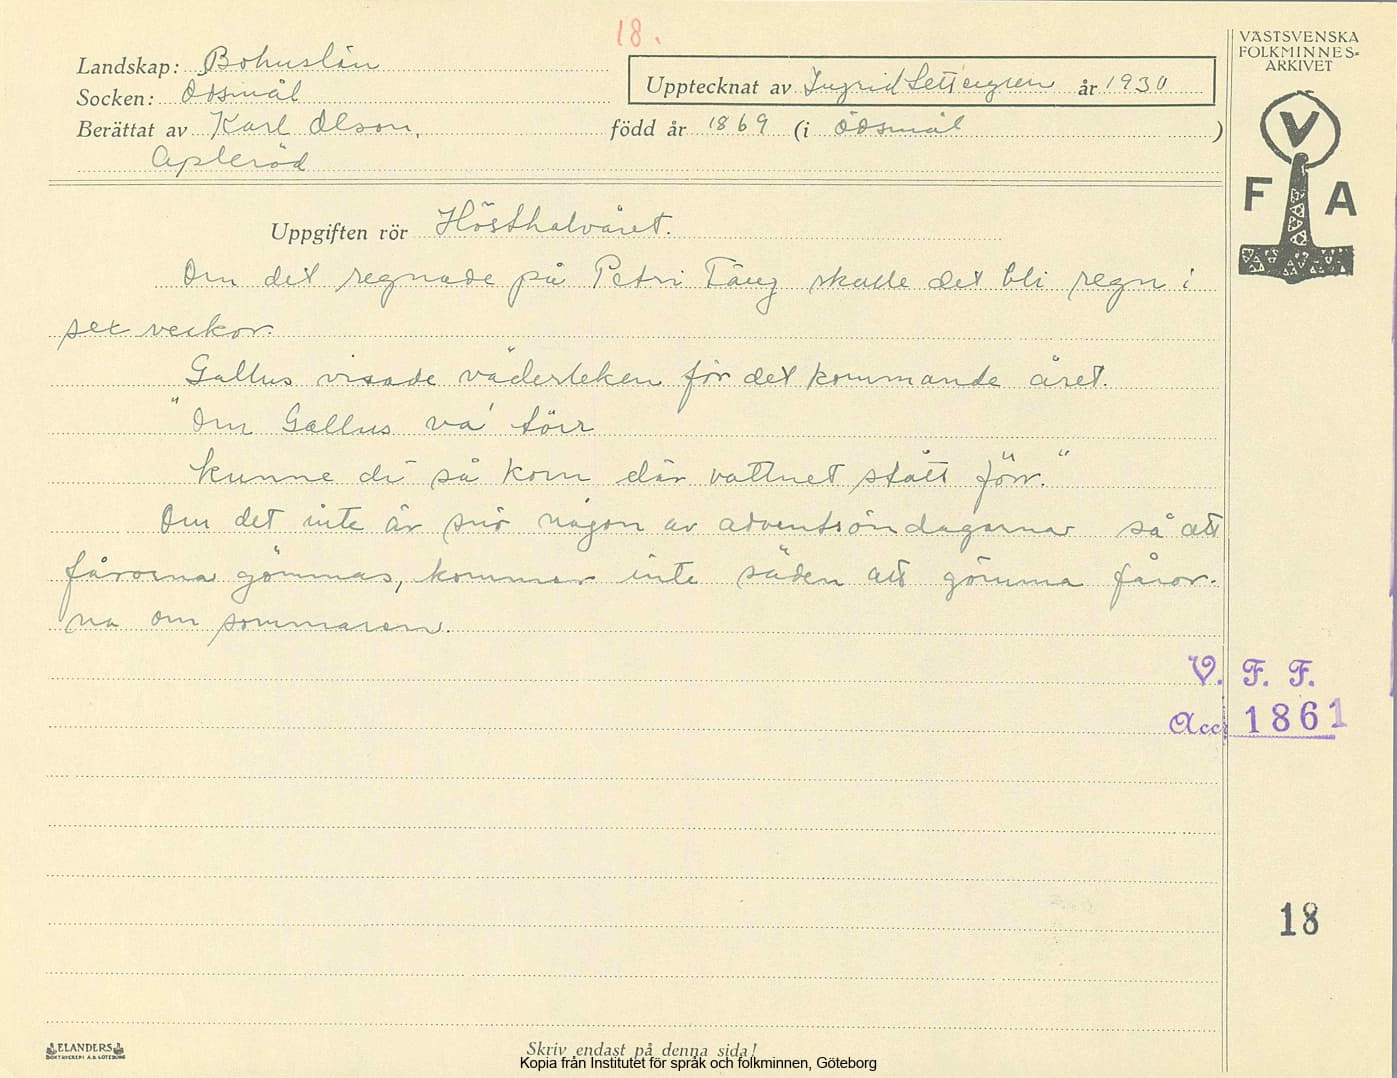 18.
VÄSTSVENSKA
FOLKMINNES-
ARKIVET
V
F A
Landskap: Bohuslän
Upptecknat av Ingrid Settergren år 1930
Socken: Ödsmål
Berättat av Karl Olson, född år 1869 (i Ödsmål)
Apleröd
Uppgiften rör Hösthalvåret.
Om det regnade på Petri Fång skulle det bli regn i
sex veckor.
Gallus visade väderleken för det kommande året.
"Om Gallus va' törr
kunne di så korn där vattnet stått förr."
Om det inte är snö någon av adventsöndagarna så att
fårorna gömmas, kommer inte säden att gömma fåror-
na om sommaren.
V. F. F.
Acc. 1861
18
ELANDERS
BOKTRYCKERI A.B. GÖTEBORG
Skriv endast på denna sida!
Kopia från Institutet för språk och folkminnen, Göteborg